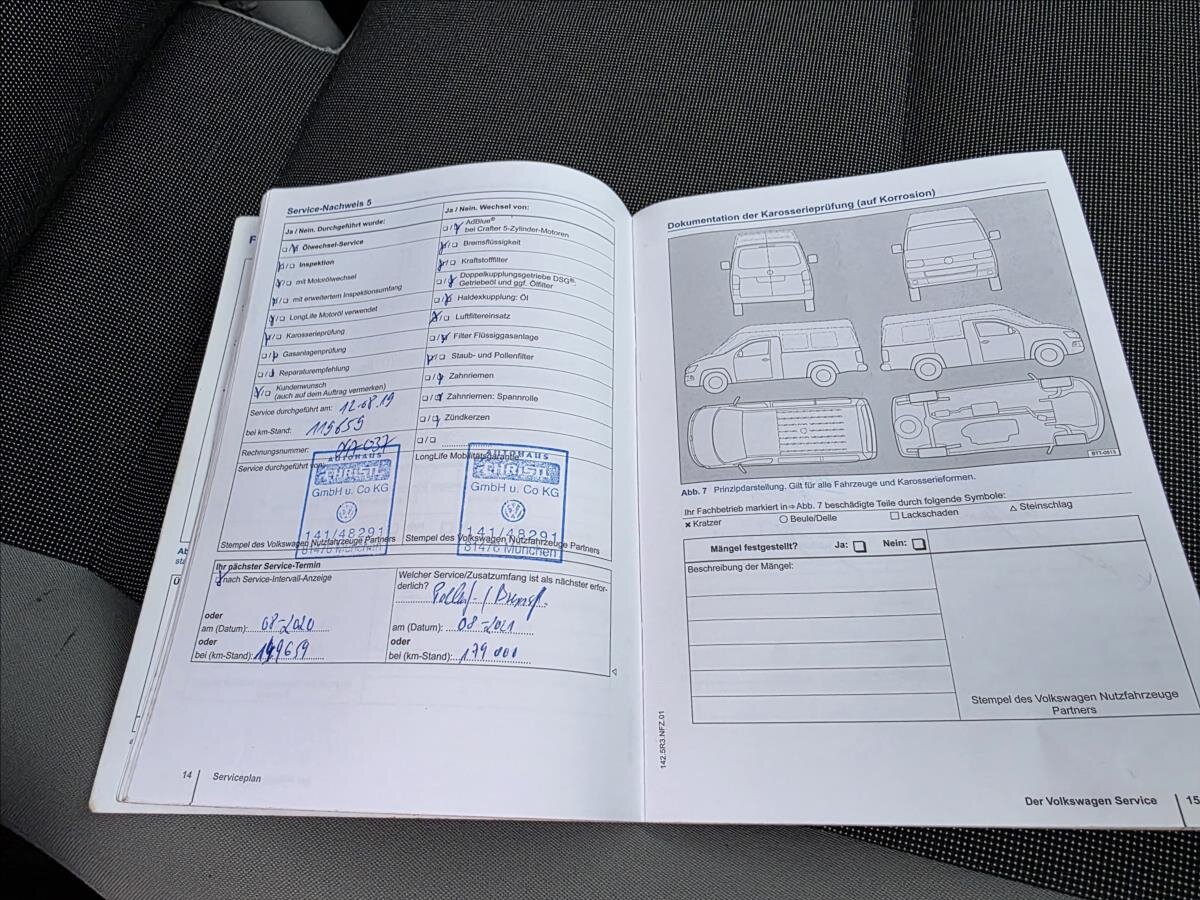 Service-Nachweis 5
Ja / Nein. Durchgeführt wurde:
Ölwechsel-Service
Inspektion
mit Motorölwechsel
mit erweitertem Inspektionsumfang
LongLife Motoröl verwendet
Karosserieprüfung
Gasanlagenprüfung
Reparaturempfehlung
Kundenwunsch
(auch auf dem Auftrag vermerken)
Service durchgeführt am: 12.08.19
bei km-Stand: 119659
Rechnungsnummer:
Service durchgeführt von:
AUTOHAUS
CHRISTL
GmbH u. Co KG
141/48291
81476 München
Stempel des Volkswagen Nutzfahrzeuge Partners
Ja / Nein. Wechsel von:
AdBlue®
bei Crafter 5-Zylinder-Motoren
Bremsflüssigkeit
Kraftstofffilter
Doppelkupplungsgetriebe DSG®:
Getriebeöl und ggf. Ölfilter
Haldexkupplung: Öl
Luftfiltereinsatz
Filter Flüssiggasanlage
Staub- und Pollenfilter
Zahnriemen
Zahnriemen: Spannrolle
Zündkerzen
LongLife Mobilitätsgarantie
AUTOHAUS
CHRISTL
GmbH u. Co KG
141/48291
81476 München
Stempel des Volkswagen Nutzfahrzeuge Partners
Ihr nächster Service-Termin
nach Service-Intervall-Anzeige
oder
am (Datum): 08-2020
oder
bei (km-Stand): 149659
Welcher Service/Zusatzumfang ist als nächster erfor-
derlich?
am (Datum): 08-2021
oder
bei (km-Stand): 179 000
14 Serviceplan
Dokumentation der Karosserieprüfung (auf Korrosion)
BTT-0513
Abb. 7 Prinzipdarstellung. Gilt für alle Fahrzeuge und Karosserieformen.
Ihr Fachbetrieb markiert in ⇒ Abb. 7 beschädigte Teile durch folgende Symbole:
× Kratzer ○ Beule/Delle □ Lackschaden △ Steinschlag
Mängel festgestellt? Ja: Nein:
Beschreibung der Mängel:
Stempel des Volkswagen Nutzfahrzeuge
Partners
142.5R3.NFZ.01
Der Volkswagen Service 15